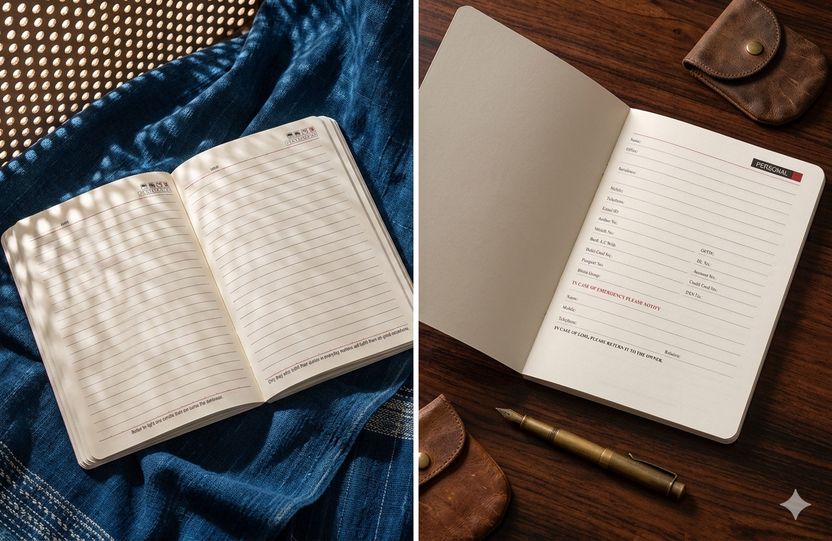 Better to light one candle than to curse the darkness.
Only they who fulfil their duties in everyday matters will fulfil them on great occasions.
PERSONAL
Name:
Office:
Residence:
Mobile:
Telephone:
Email ID:
Aadhar No:
Bank A.C With
Debit Card No.
Credit Card No:
Passport No:
Blood Group:
IN CASE OF EMERGENCY PLEASE NOTIFY
Name:
Mobile:
Telephone:
Relation:
IN CASE OF LOSS, PLEASE RETURN IT TO THE OWNER.